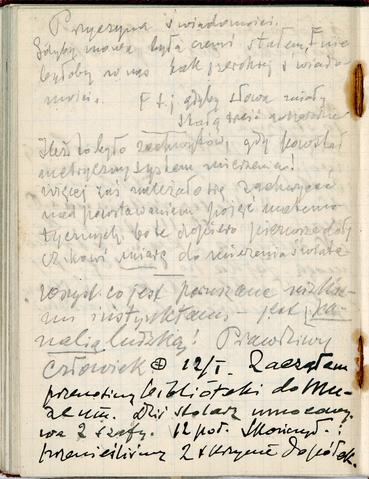 Przyczyna świadomości.
Gdyby mowa była czemś stałem, nie
byłoby w nas tak szerokiej świado
mości. t.j. gdyby słowa miały
stałą treść
Ileż to było zachwytów, gdy powstał
metryczny system mierzenia!
więcej zaś należało się zachwycać
nad powstawaniem pojęć matema
tycznych, bo te dopiero pierwsze dały
człowi miarę do mierzenia świata
Wszystko jest poruszane nizkie
mi instynktami - jest ka
nalią ludzką! Prawdziwy
człowiek 12/I. Zacząłem
przenosiny biblioteki do Mu-
zeum. Dziś stolarz umocowy-
wa 2 szafy. 12 poł. Skończył i
przenieśliśmy 2 skrzynie do półek.